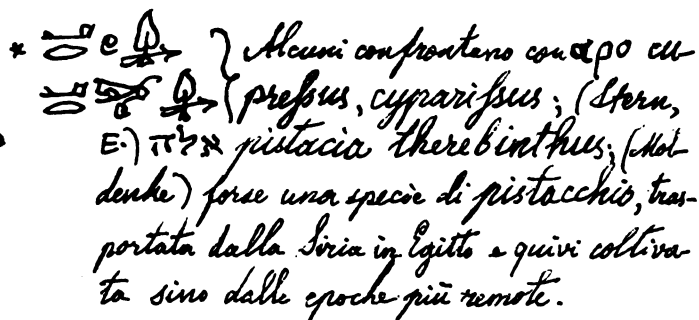 * Alcuni confrontano con ⲁⲣⲟ cu-
preſsus, cypariſsus; (Stern,
E.) אלה pistacia therebinthus; (Mol-
denke) forse una specie di pistacchio, tras-
portata dalla Siria in Egitto e quivi coltiva-
ta sino dalle epoche più remote.